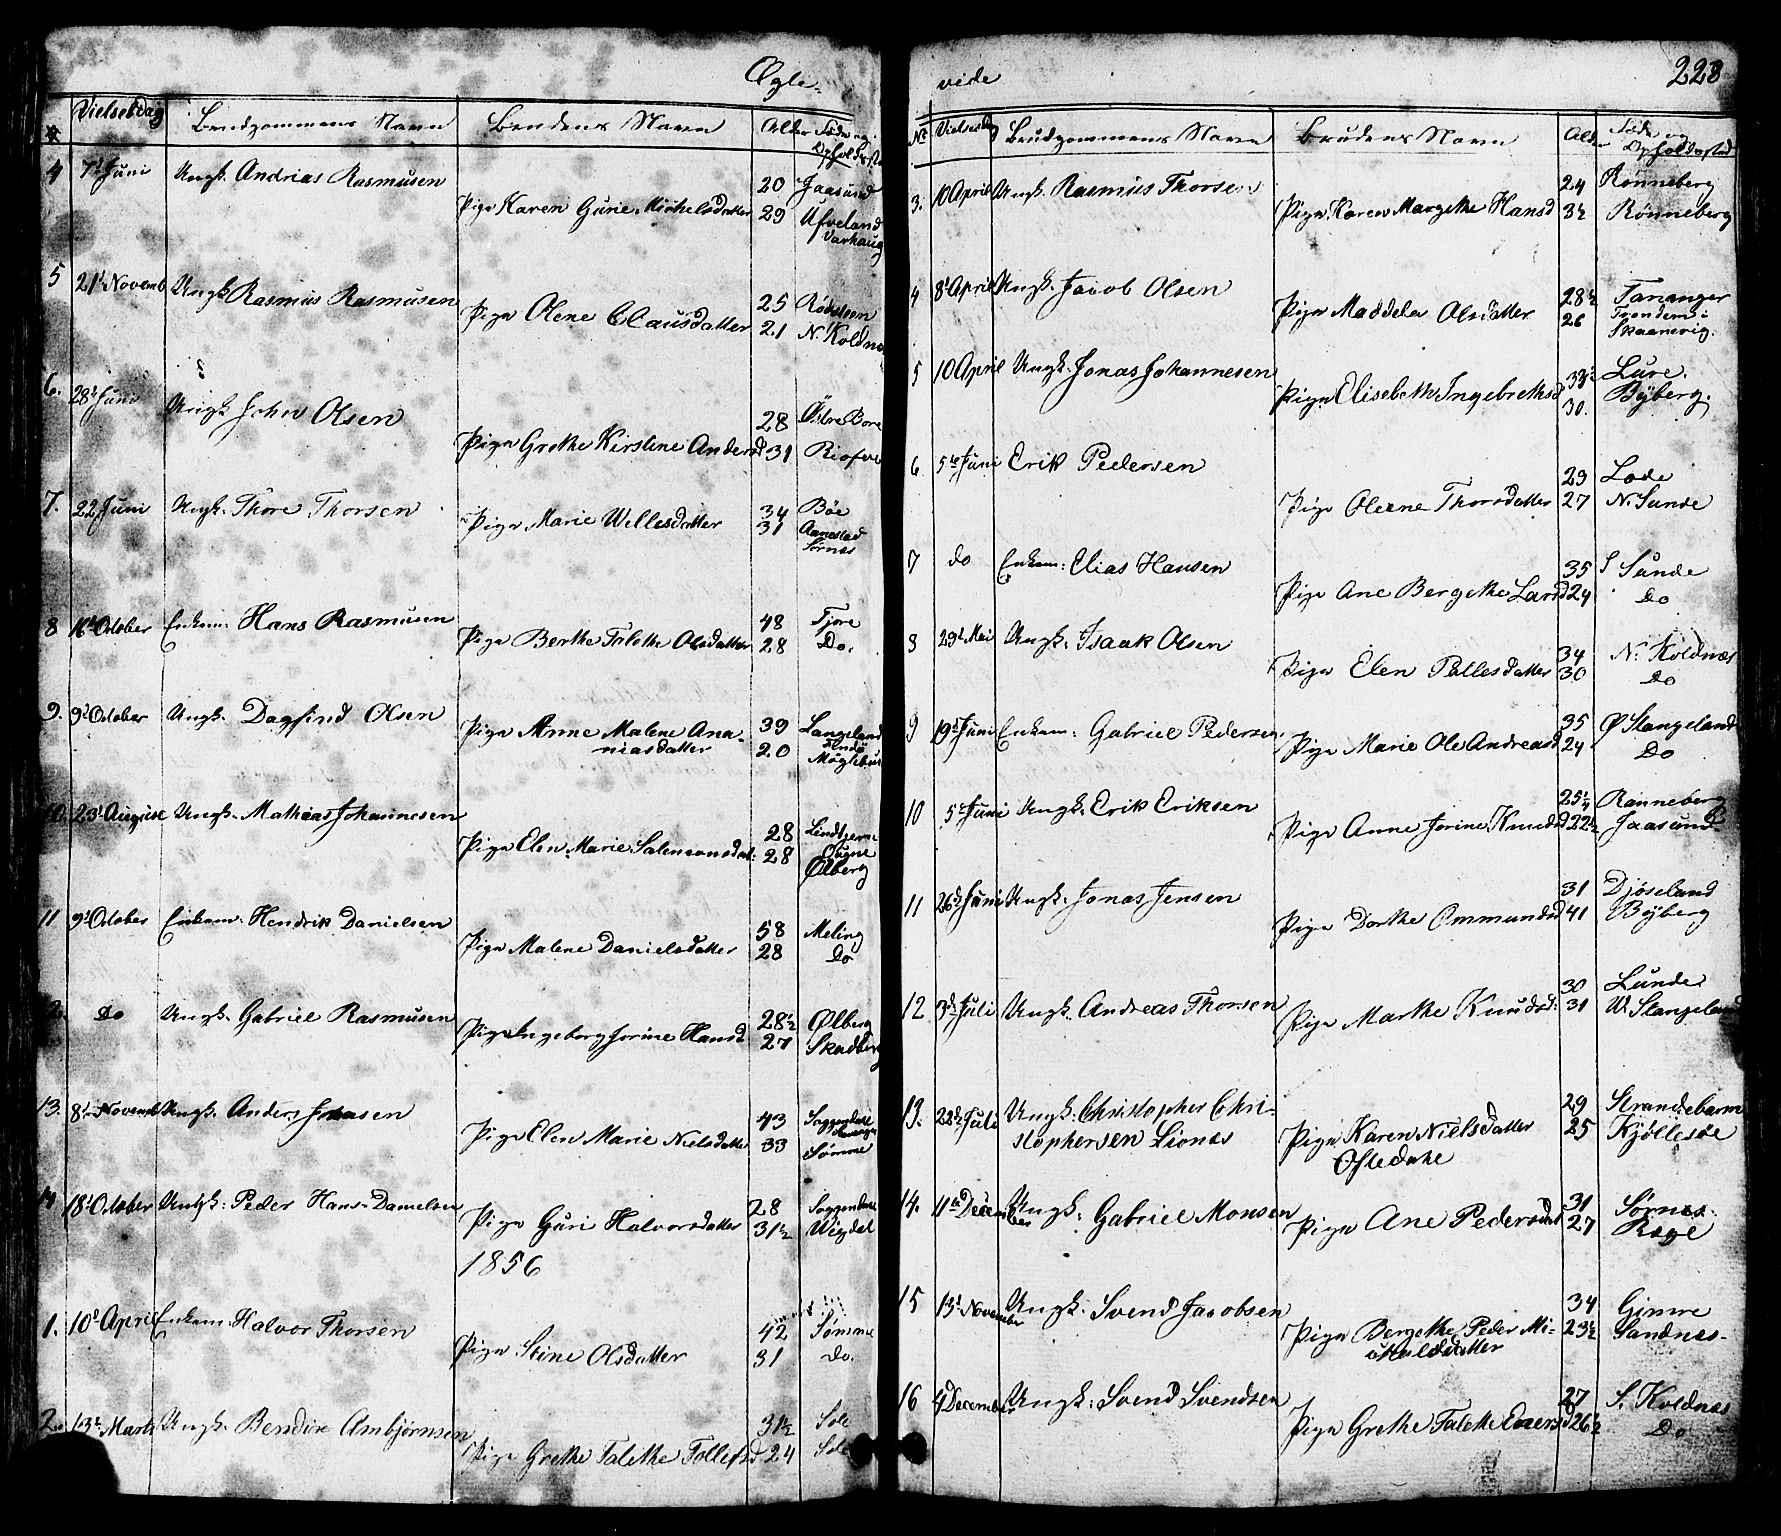 Ægte-
№ Vielsesdag Brudgommens Navn Brudens Navn Alder Føde og
Opholdssted
4 7d Juni Ungk. Andrias Rasmusen 20 Jaasund
Pige Karen Gurie Michelsdatter 29 Ufveland
Varhaug
5 21d Novemb Ungk. Rasmus Rasmusen 25 Rødsteen
Pige Olene Clausdatter 21 N. Koldnæs
6. 28d Juni Ungk John Olsen 28 Østre Bore
Pige Grethe Kirstine Andersd 31
7. 22 Juni Ungk. Thore Thorsen 34 Bøe
Pige Marie Willesdatter 31 Aanestad
Sørnæs
8 16d October Enkem: Hans Rasmusen 48 Tjore
Pige Berthe Talethe Olsdatter 28 Do.
9. 9d October Ungk. Dagfind Olsen 39 Langeland
Pige Anne Malene Ana-
niasdatter 20
10. 23d August Ungk. Mathias Johannesen 28
Pige Elen Marie Salemonsdat: 28 Ølberg
11 9d October Enkem: Hendrik Danielsen 58 Meling
Pige Malene Danielsdatter 28 Do
2. Do Ungk. Gabriel Rasmusen 28½ Ølberg
Pige Ingeborg Jorine Hansd 27 Skadberg
13. 8d Novemb Ungk. Anders Jonasen 43 Soggendahl
Pige Elen Marie Nielsdatter 33 Sømme
14 18d October Ungk: Peder Hans Danielsen 28 Soggendahl
Pige Guri Halvorsdatter 31½ Wigdal
1856
1. 10d April Enkem. Halvor Thorsen 42 Sømme
Pige Stine Olsdatter 31 Do.
2. 13d Marts Ungk. Bendix Ambjørnsen 31½ Sole
Pige Grethe Talethe Tollefsd 24 Sole
viede 228
№ Vielsesdag Brudgommens Navn Brudens Navn Alder Føde og
Opholdssted
3. 10 April Ungk. Rasmus Thorsen 24 Rønneberg
Pige Karen Margethe Hansd 3½ Rønneberg
4 8d April Ungk. Jacob Olsen 28½ Tananger
Pige Maddela Olsdatter 26
Skaanevig.
5 10 April Ungk. Jonas Johannesen 33½ Lure.
Pige Elisebeth Ingebrethsd 30. Byberg.
6 5te Juni Erik Pedersen 29 Lode
Pige Olerne Thorsdatter 27 N. Sunde
7 do Enkem: Elias Hansen 35 S Sunde
Pige Ane Bergethe Larsd 24 Do
8 29d Mai Ungk. Isaak Olsen 34 N. Koldnæs
Pige Elen Pallesdatter 30 Do
9 19d Juni Enkem: Gabriel Pedersen 35 Ø Stangeland
Pige Marie Ole Andreasd 24 Do
10 5te Juni Ungk. Erik Eriksen 25¼ Rønneberg
Pige Anne Jorine Knudsd 22½ Jaasund
11 26d Juni Ungk. Jonas Jensen 31 Djøseland
Pige Dorthe Ommundsd 41 Byberg
12 3d Juli Ungk. Andreas Thorsen 30 Lunde
Pige Marthe Knudsd: 31 W. Stangeland
13. 22d Juli Ungk: Christopher Chri- 29 Strandebarm
stophersen Lionæs Pige Karen Nielsdatter 25 Kjøllesøe
Oftedahl
14. 11te December Ungk. Gabriel Monsen 31 Sørnæs.
Pige Ane Pedersdat 27 Rege
15 13d November Ungk. Svend Jacobsen 34 Gimre
Pige Bergethe Peder Mi- 23½ Sandnæs-
16 4 December Ungk: Svend Svendsen 27 S. Koldnæs
Pige Grethe Talethe Einersd 26½ Do